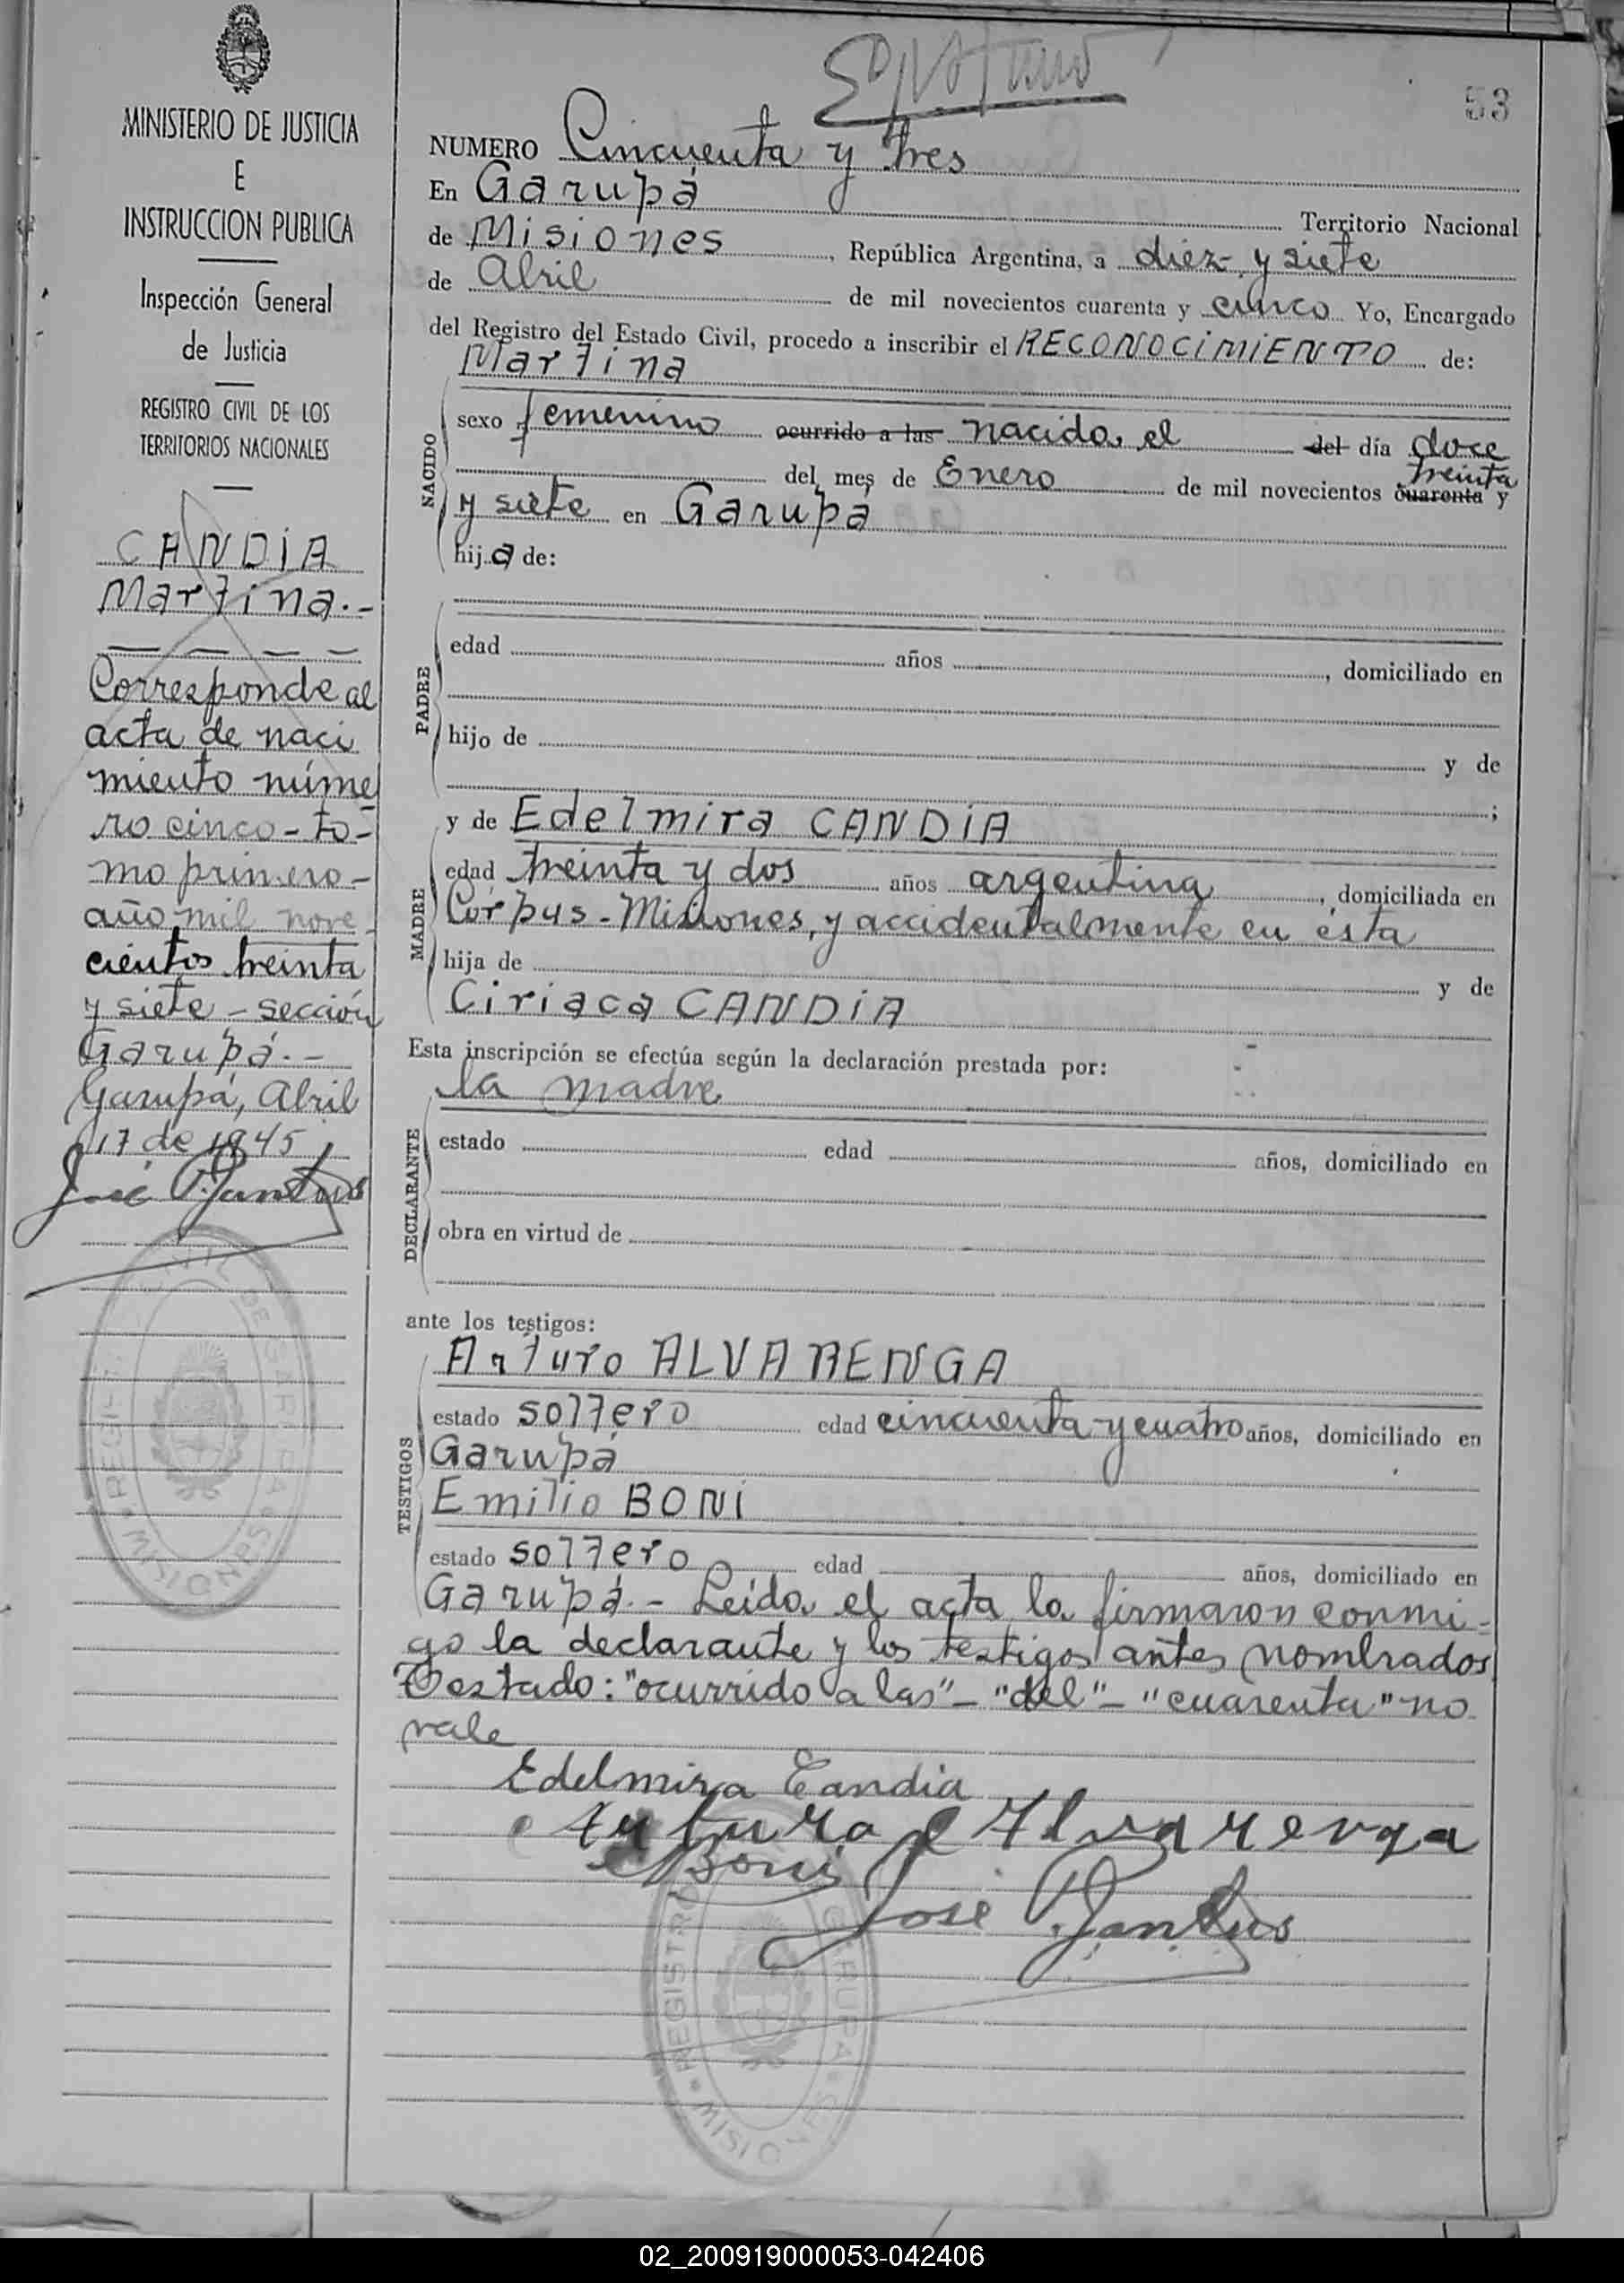 53
MINISTERIO DE JUSTICIA
E
INSTRUCCION PUBLICA
Inspección General
de Justicia
REGISTRO CIVIL DE LOS
TERRITORIOS NACIONALES
CANDIA
Martina.-
Corresponde al
acta de naci
miento núme
ro cinco - to-
mo primero -
año mil nove
cientos treinta
y siete - sección
Garupá.-
Garupá, Abril
17 de 1945
NUMERO Cincuenta y tres
En Garupá Territorio Nacional
de Misiones, República Argentina, a diez y siete
de Abril de mil novecientos cuarenta y cinco Yo, Encargado
del Registro del Estado Civil, procedo a inscribir el RECONOCIMIENTO de:
Martina
NACIDO
sexo femenino ocurrido a las nacida el del día doce
del mes de Enero de mil novecientos cuarenta treinta y
y siete en Garupá
hija de:
PADRE
edad años , domiciliado en
hijo de y de
;
MADRE
y de Edelmira CANDIA
edad treinta y dos años argentina, domiciliada en
Corpus - Misiones, y accidentalmente en ésta
hija de y de
Ciriaca CANDIA
Esta inscripción se efectúa según la declaración prestada por:
la madre
DECLARANTE
estado edad años, domiciliado en
obra en virtud de
ante los testigos:
TESTIGOS
Arturo ALVARENGA
estado soltero edad cincuenta y cuatro años, domiciliado en
Garupá
Emilio BONI
estado soltero edad años, domiciliado en
Garupá.- Leída el acta la firmaron conmi-
go la declarante y los testigos antes nombrados
Testado: "ocurrido a las" - "del" - "cuarenta" no
vale
Edelmira Candia
Arturo Alvarenga
Boni
José
REGISTRO
MISIONES
02_200919000053-042406